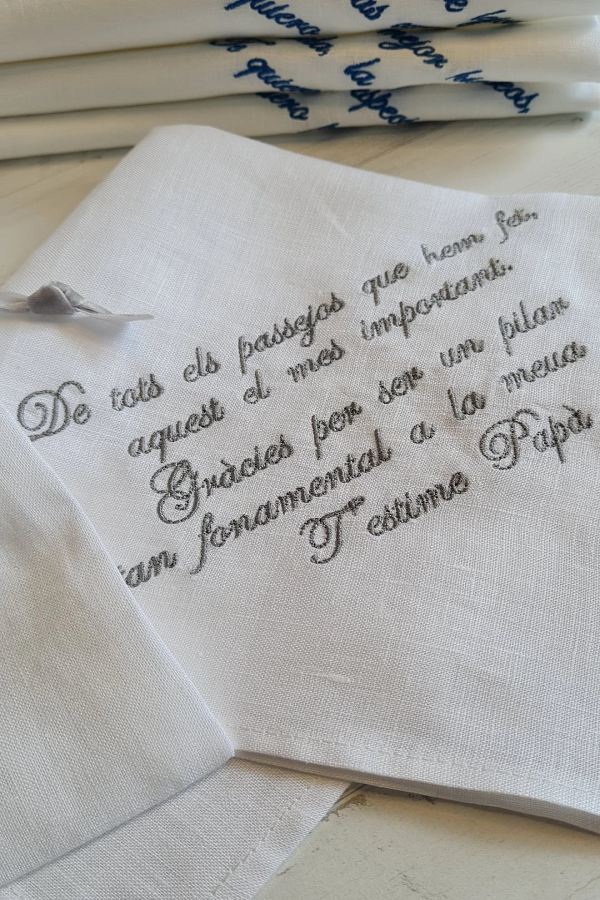 quiero
mejor
la
De tots els passejos que hem fet,
aquest el mes important.
Gràcies per ser un pilar
tan fonamental a la meua
T'estime Papà